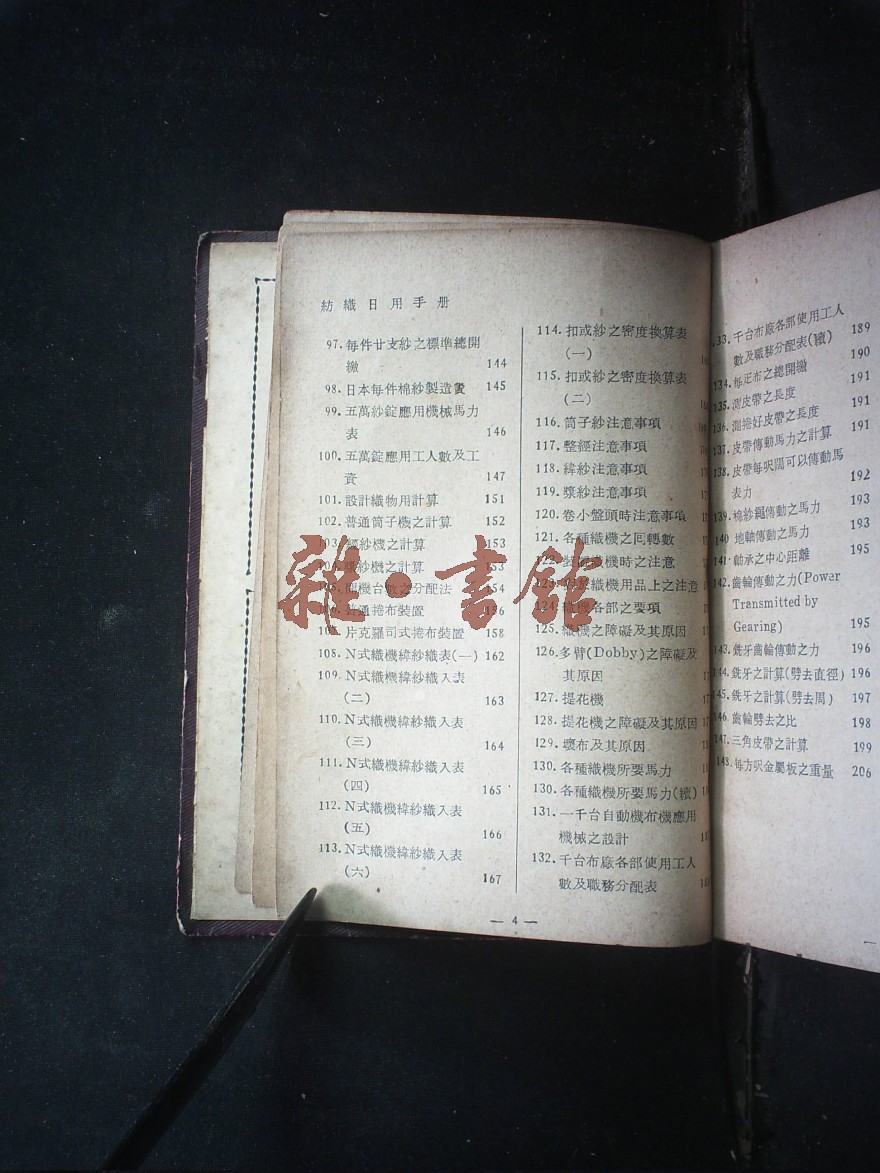 紡織日用手册
97. 每件廿支紗之標準總開
繳 144
98. 日本每件棉紗製造費 145
99. 五萬紗錠應用機械馬力
表 146
100. 五萬錠應用工人數及工
資 147
101. 設計織物用計算 151
102. 普通筒子機之計算 152
103. 經紗機之計算 153
漿紗機之計算 153
開機台數之分配法 154
普通捲布裝置 156
107. 片克羅司式捲布裝置 158
108. N式織機緯紗織表(一) 162
109. N式織機緯紗織入表
(二) 163
110. N式織機緯紗織入表
(三) 164
111. N式織機緯紗織入表
(四) 165
112. N式織機緯紗織入表
(五) 166
113. N式織機緯紗織入表
(六) 167
114. 扣或紗之密度換算表
(一)
115. 扣或紗之密度換算表
(二)
116. 筒子紗注意事項
117. 整經注意事項
118. 緯紗注意事項
119. 漿紗注意事項
120. 卷小盤頭時注意事項
121. 各種織機之回轉數
122. 裝置織機時之注意
123. 織機用品上之注意
124. 織機各部之要項
125. 織機之障礙及其原因
126. 多臂(Dobby)之障礙及
其原因
127. 提花機
128. 提花機之障礙及其原因
129. 壞布及其原因
130. 各種織機所要馬力
130. 各種織機所要馬力(續)
131. 一千台自動機布機應用
機械之設計
132. 千台布廠各部使用工人
數及職務分配表
— 4 —
133. 千台布廠各部使用工人
數及職務分配表(續) 189
134. 每疋布之總開繳 190
135. 測皮帶之長度 191
136. 測捲好皮帶之長度 191
137. 皮帶傳動馬力之計算 191
138. 皮帶每呎闊可以傳動馬
表力 192
139. 棉紗繩傳動之馬力 193
140 地軸傳動之馬力 193
141. 動承之中心距離 195
142. 齒輪傳動之力(Power
Transmitted by
Gearing) 195
143. 銑牙齒輪傳動之力 196
144. 銑牙之計算(劈去直徑) 196
145. 銑牙之計算(劈去周) 197
146. 齒輪劈去之比 198
147. 三角皮帶之計算 199
148. 每方呎金屬板之重量 206
雜·書館